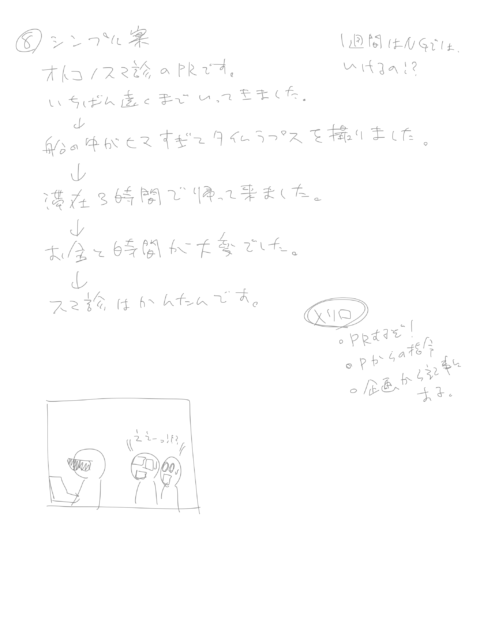 ⑧ シンプル案
オトコノスマ診のPRです。
いちばん遠くまでいってきました。
↓
船の中がヒマすぎてタイムラプスを撮りました。
↓
滞在3時間で帰って来ました。
↓
お金と時間が大変でした。
↓
スマ診はかんたんです。
1週間はNGでは、
いけるの!?
メリロ
○PRするぞ!
○Pからの指令
○企画から記事に
する。
ええー!!?